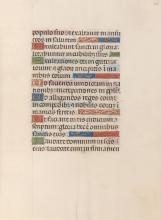 populo suo: et exaltavit man
suetos in salutem
Exultabunt sancti in gloria:
letabuntur in cubilibus suis
Exultationes dei in gutture
eorum: et gladii ancipites in ma
nibus eorum
Ad faciendam vindictam in na
tionibus: increpationes in populis
Ad alligandos reges eorum in
compedibus: et nobiles eorum in
manicis ferreis
Ut faciant in eis iudicium con
scriptum: gloria hec est omnibus
sanctis eius
Laudate dominum in sanctis
eius: laudate eum in firmamen